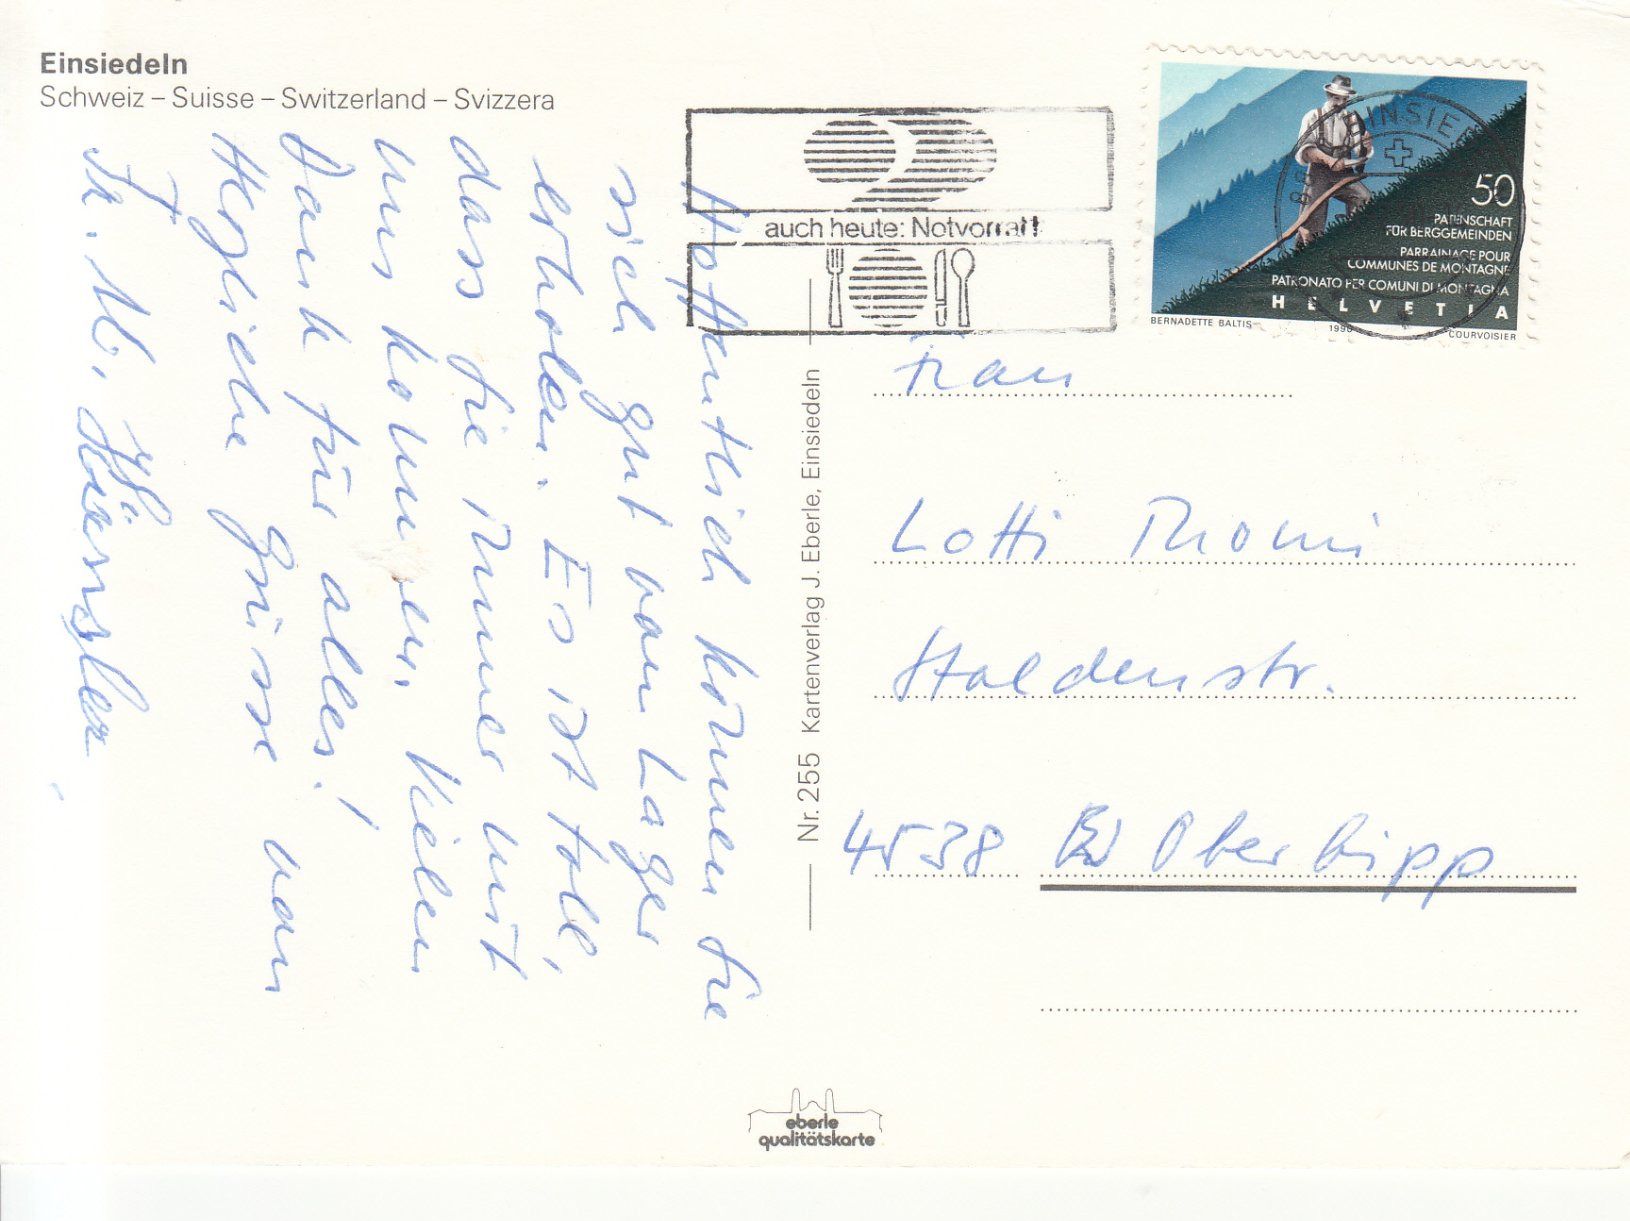 Einsiedeln
Schweiz – Suisse – Switzerland – Svizzera
auch heute: Notvorrat!
EINSIE
50
PATENSCHAFT
FÜR BERGGEMEINDEN
PARRAINAGE POUR
COMMUNES DE MONTAGNE
PATRONATO PER COMUNI DI MONTAGNA
HELVETIA
BERNADETTE BALTIS 1990 COURVOISIER
Hoffentlich können Sie
sich gut vom Lager
erholen. Es ist toll,
dass Sie immer mit
uns kommen. Vielen
Dank für alles!
Herzliche Grüsse von
Fr. M.
Nr. 255 Kartenverlag J. Eberle, Einsiedeln
Frau
Lotti Thomi
Haldenstr.
4538 Oberbipp
eberle
qualitätskarte